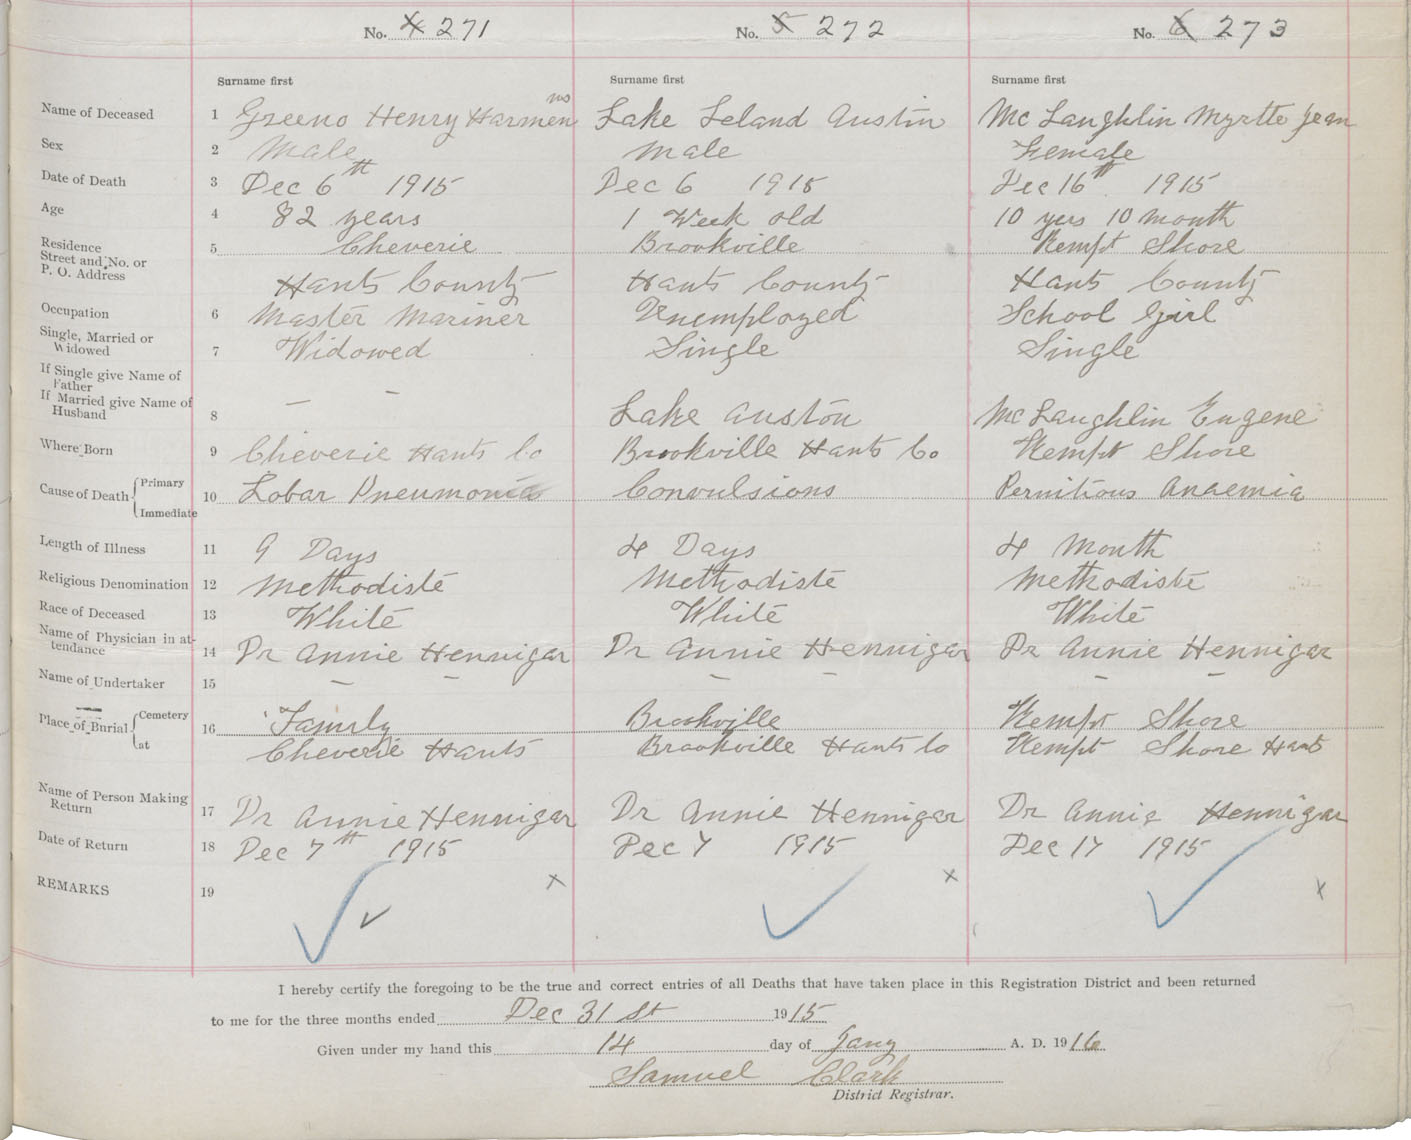 No. 4 271 No. 5 272 No. 6 273
Surname first Surname first Surname first
Name of Deceased 1 Greeno Henry Harmenno Lake Leland Austin McLaughlin Myrtte Jean
Sex 2 Male Male Female
Date of Death 3 Dec 6th 1915 Dec 6 1915 Dec 16th 1915
Age 4 82 years 1 Week old 10 yers 10 month
Residence 5 Cheverie Brookville Kempt Shore
Street and No. or
P. O. Address Hants County Hants County Hants County
Occupation 6 Master Mariner Unemployed School Girl
Single, Married or
Widowed 7 Widowed Single Single
If Single give Name of
Father
If Married give Name of
Husband 8 — — Lake Auston McLaughlin Eugene
Where Born 9 Cheverie Hants Co Brookville Hants Co Kempt Shore
Cause of Death { Primary
10 Lobar Pneumonia Convulsions Pernitious Anaemia
Immediate
Length of Illness 11 9 Days 4 Days 4 Month
Religious Denomination 12 Methodiste Methodiste Methodiste
Race of Deceased 13 White White White
Name of Physician in at-
tendance 14 Dr Annie Hennigar Dr Annie Hennigar Dr Annie Hennigar
Name of Undertaker 15 — — — — — —
Place of Burial { Cemetery 16 Family Brookville Kempt Shore
at Cheverie Hants Brookville Hants Co Kempt Shore Hants
Name of Person Making
Return 17 Dr Annie Hennigar Dr Annie Hennigar Dr Annie Hennigar
Date of Return 18 Dec 7th 1915 Dec 7 1915 Dec 17 1915
REMARKS 19 x x x
I hereby certify the foregoing to be the true and correct entries of all Deaths that have taken place in this Registration District and been returned
to me for the three months ended Dec 31 St 1915
Given under my hand this 14 day of Jany A. D. 1916
Samuel Clark
District Registrar.